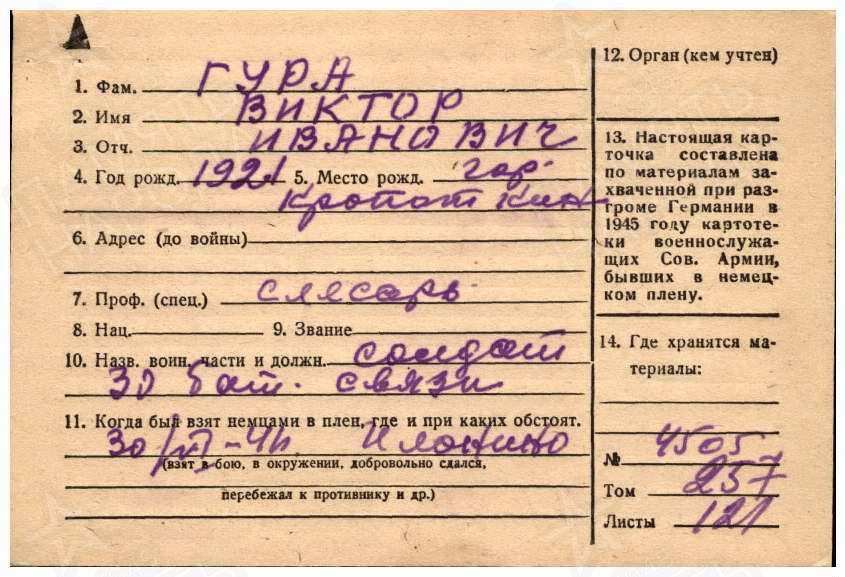 1. Фам. ГУРА
2. Имя ВИКТОР
3. Отч. ИВАНОВИЧ
4. Год рожд. 1921 5. Место рожд. гор.
Кропоткин
6. Адрес (до войны)
7. Проф. (спец.) слесарь
8. Нац. 9. Звание
10. Назв. воин. части и должн. солдат
30 бат. связи
11. Когда был взят немцами в плен, где и при каких обстоят.
30/VI-41
(взят в бою, в окружении, добровольно сдался,
перебежал к противнику и др.)
12. Орган (кем учтен)
13. Настоящая кар-
точка составлена
по материалам за-
хваченной при раз-
громе Германии в
1945 году картоте-
ки военнослужа-
щих Сов. Армии,
бывших в немец-
ком плену.
14. Где хранятся ма-
териалы:
№ 4505
Том 257
Листы 121